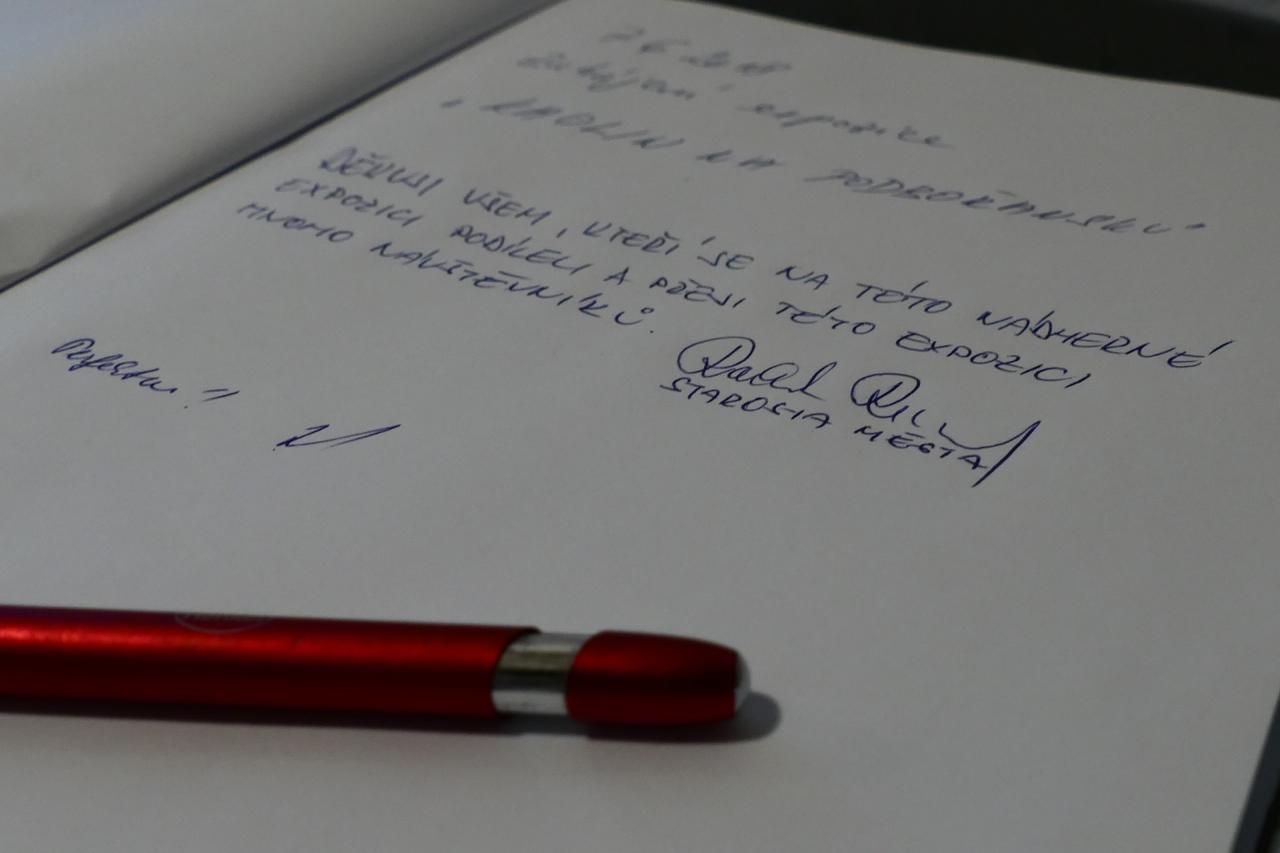 zahájení expozice
"KAOLIN NA PODBOŘANSKU"
DĚKUJI VŠEM, KTEŘÍ SE NA TÉTO NÁDHERNÉ
EXPOZICI PODÍLELI A PŘEJI TÉTO EXPOZICI
MNOHO NÁVŠTĚVNÍKŮ.
STAROSTA MĚSTA